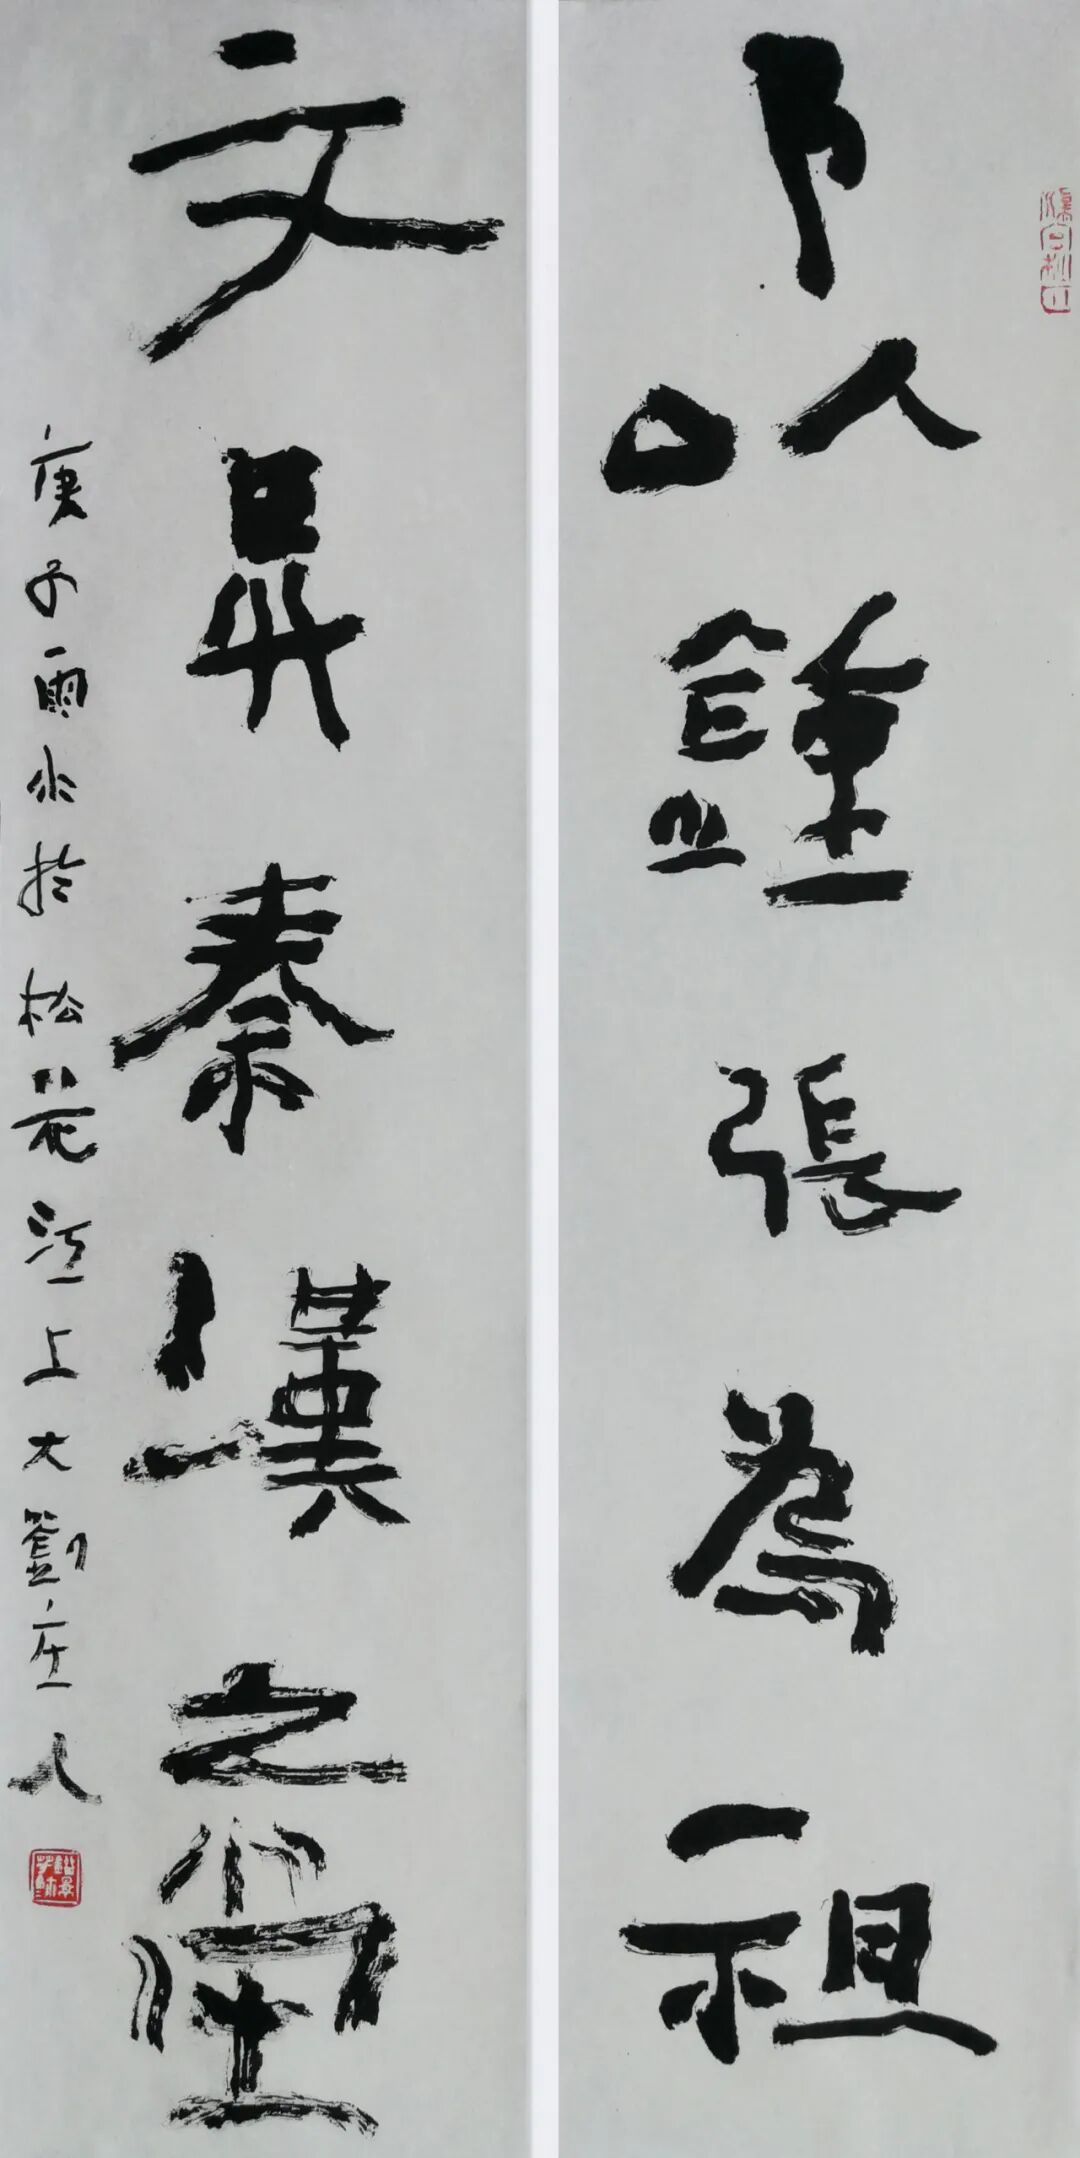 以鍾張為祖
文昇秦漢之堂
庚子雨水於松花江上大劉庄人